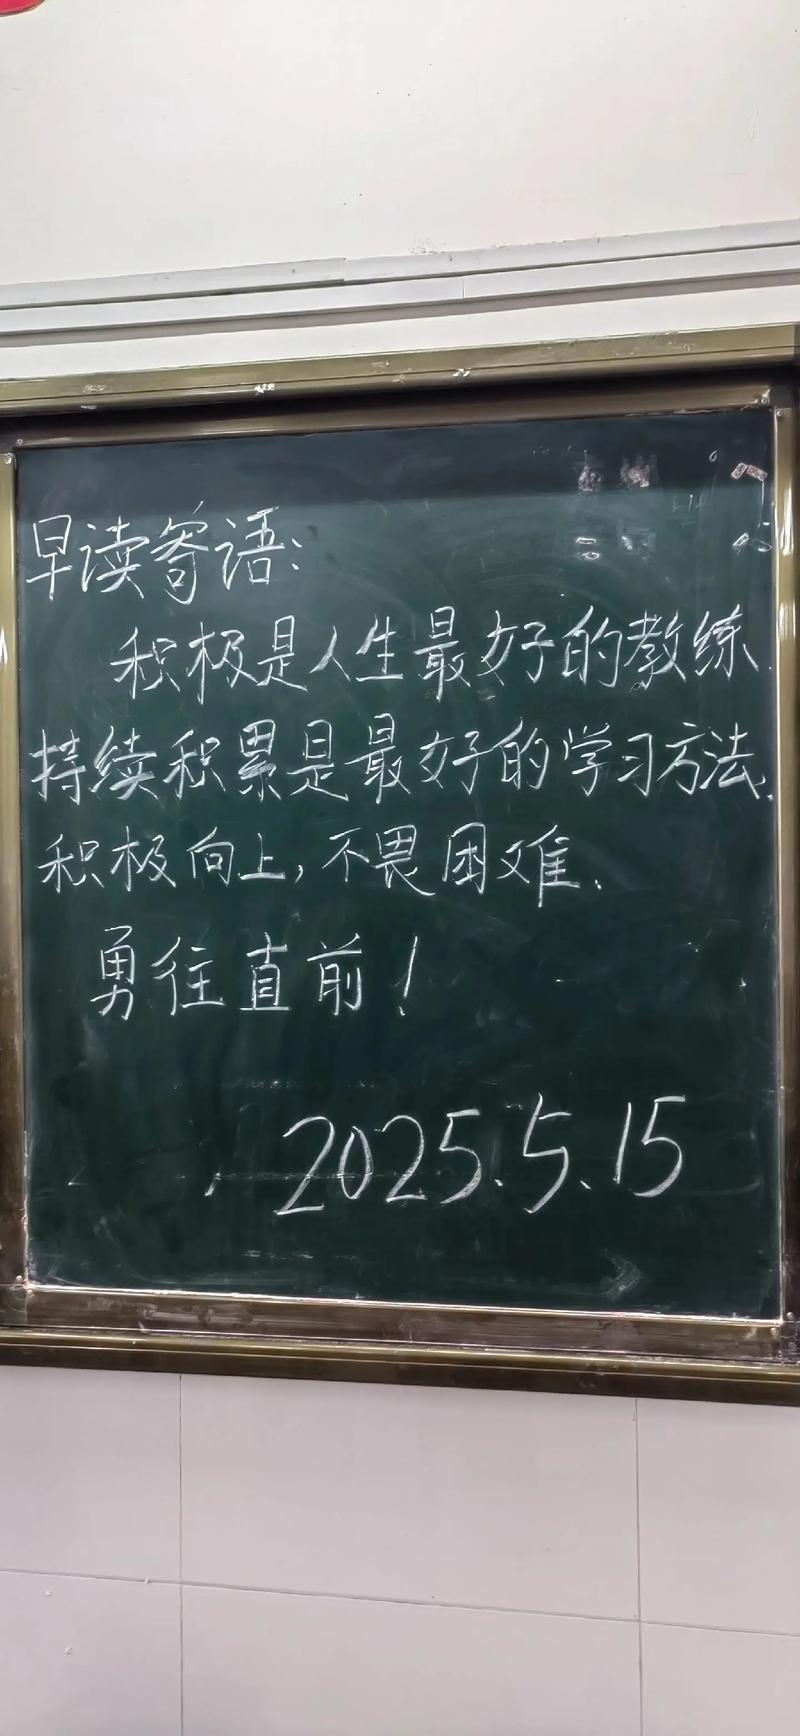 早读寄语:
积极是人生最好的教练.
持续积累是最好的学习方法.
积极向上,不畏困难.
勇往直前!
2025.5.15